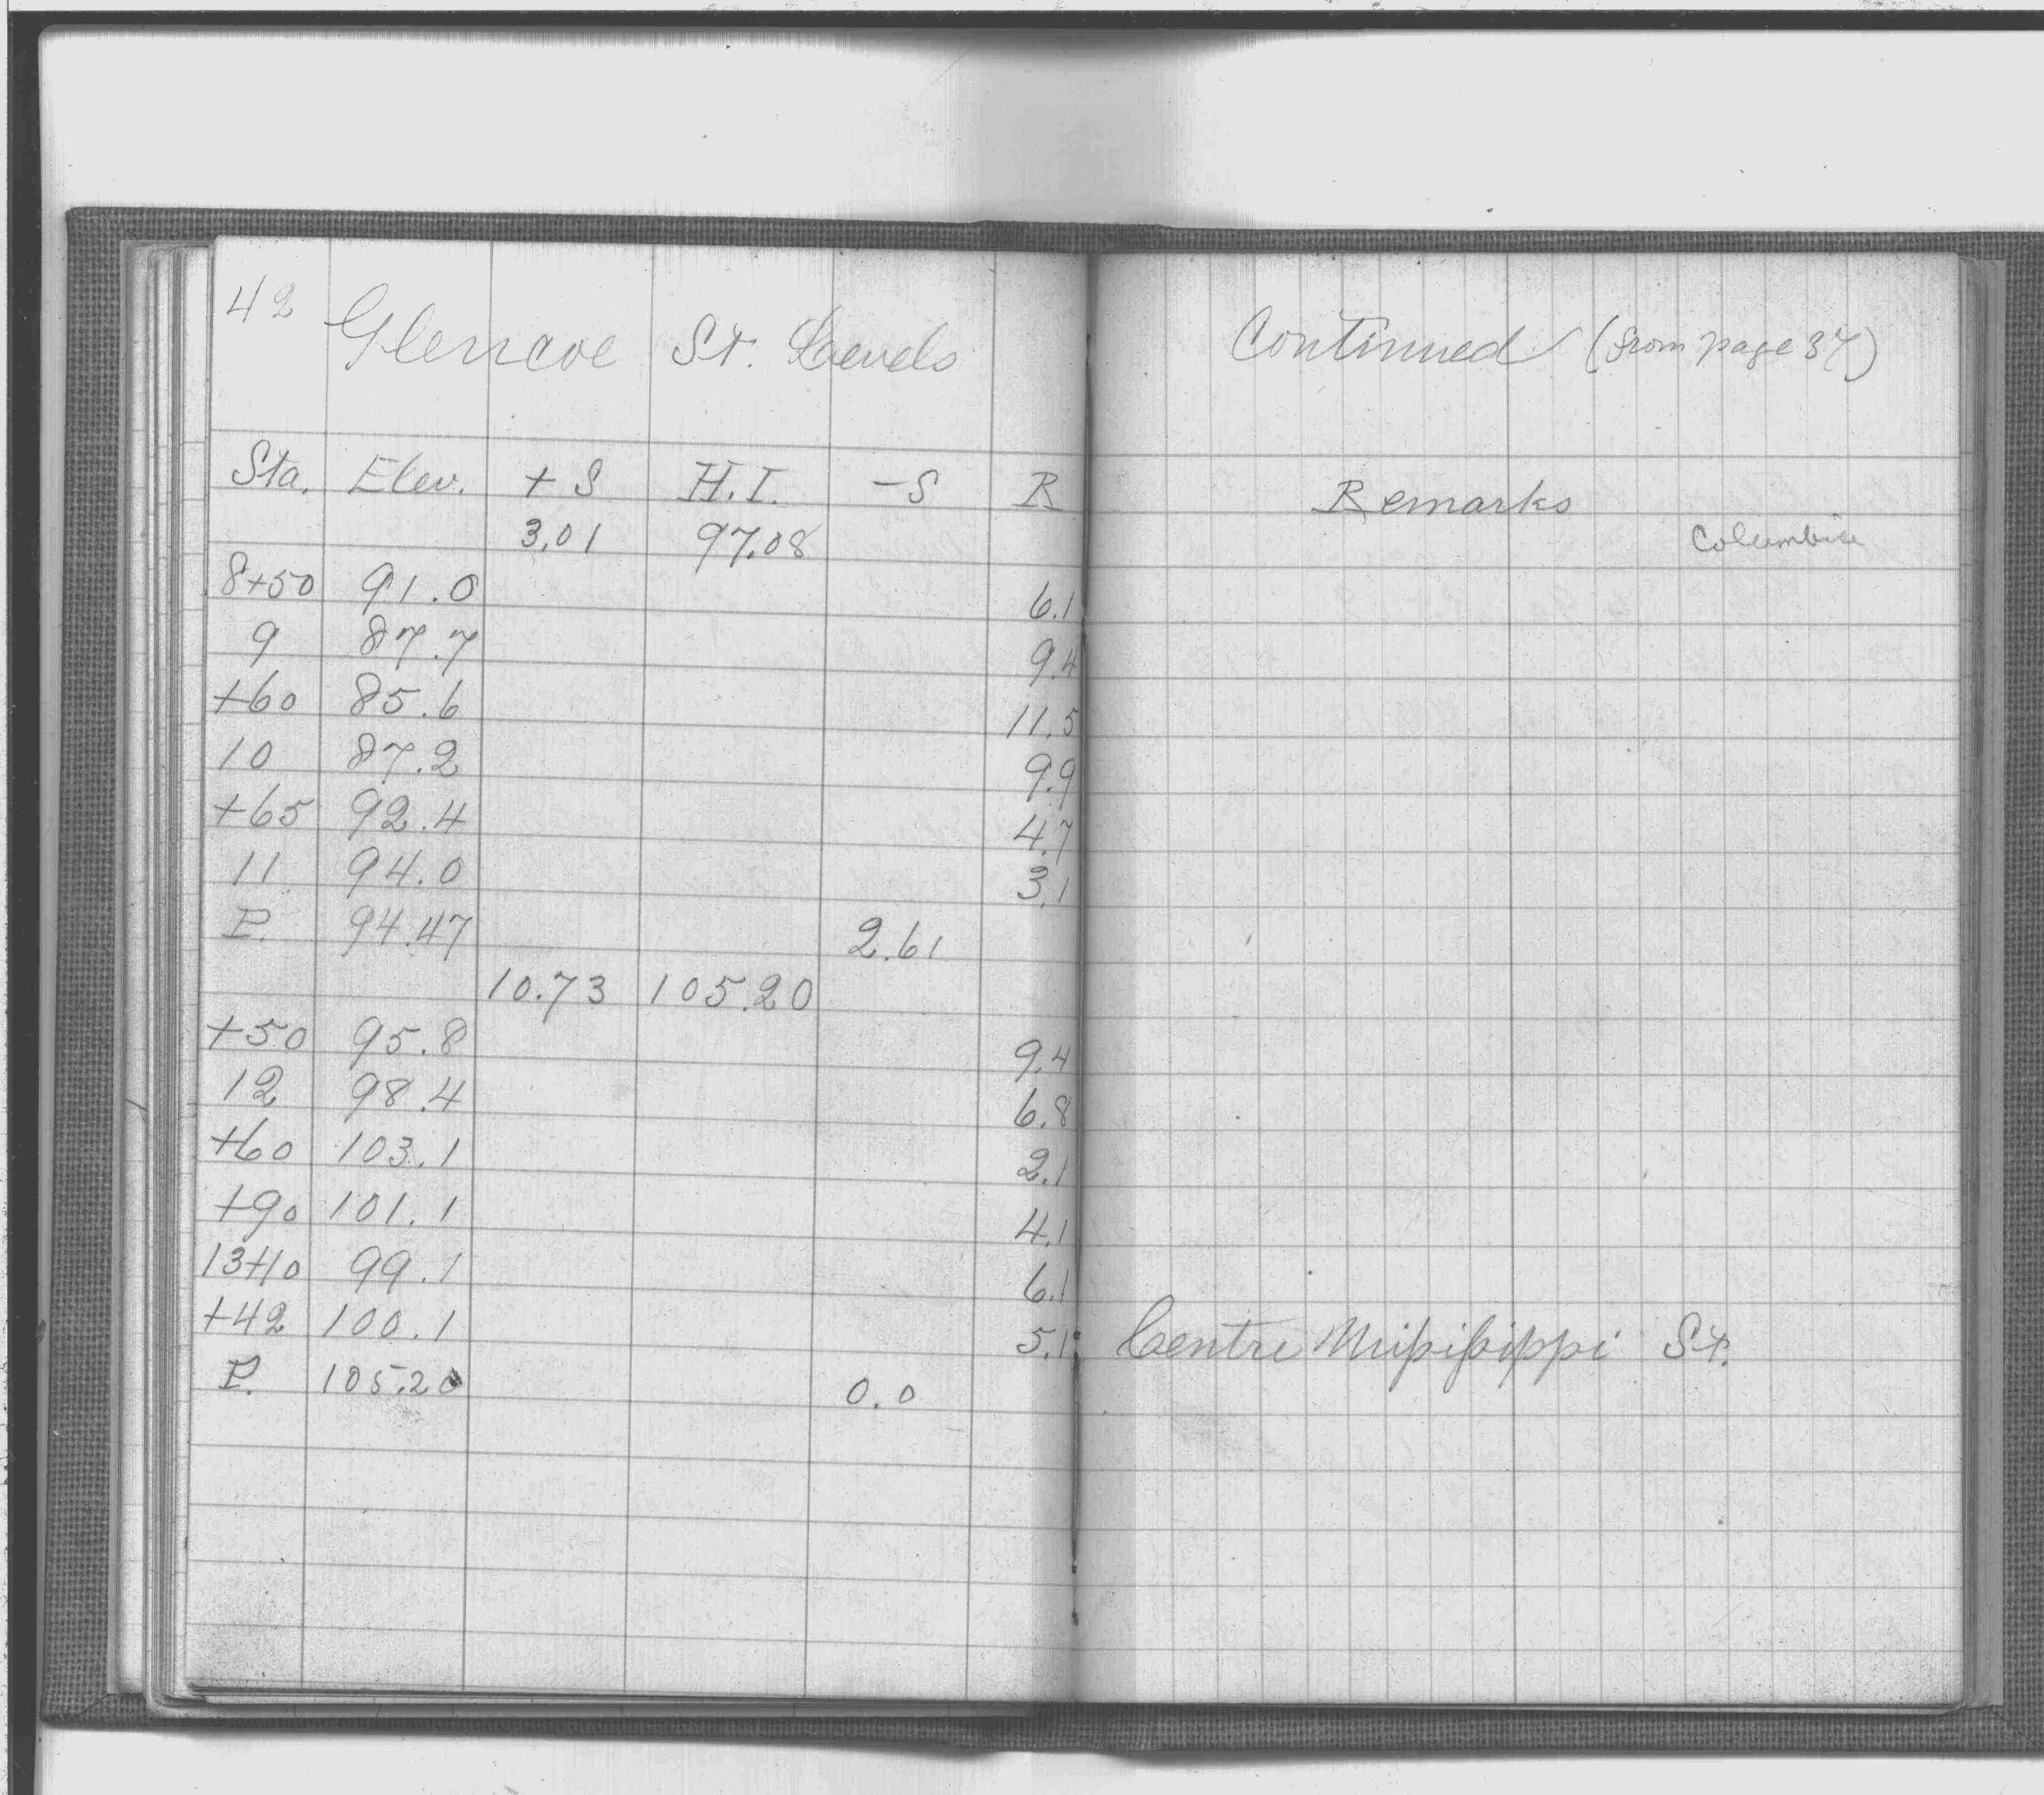 42 Glencoe St. Levels Continued (from page 37)
Sta. Elev. + S H.I. -S R Remarks
3.01 97.08 Columbia
8+50 91.0 6.1
9 87.7 9.4
+60 85.6 11.5
10 87.2 9.9
+65 92.4 4.7
11 94.0 3.1
P. 94.47 2.61
10.73 105.20
+50 95.8 9.4
12 98.4 6.8
+60 103.1 2.1
+90 101.1 4.1
13+10 99.1 6.1
+42 100.1 5.1 Centre Mississippi St.
P. 105.20 0.0